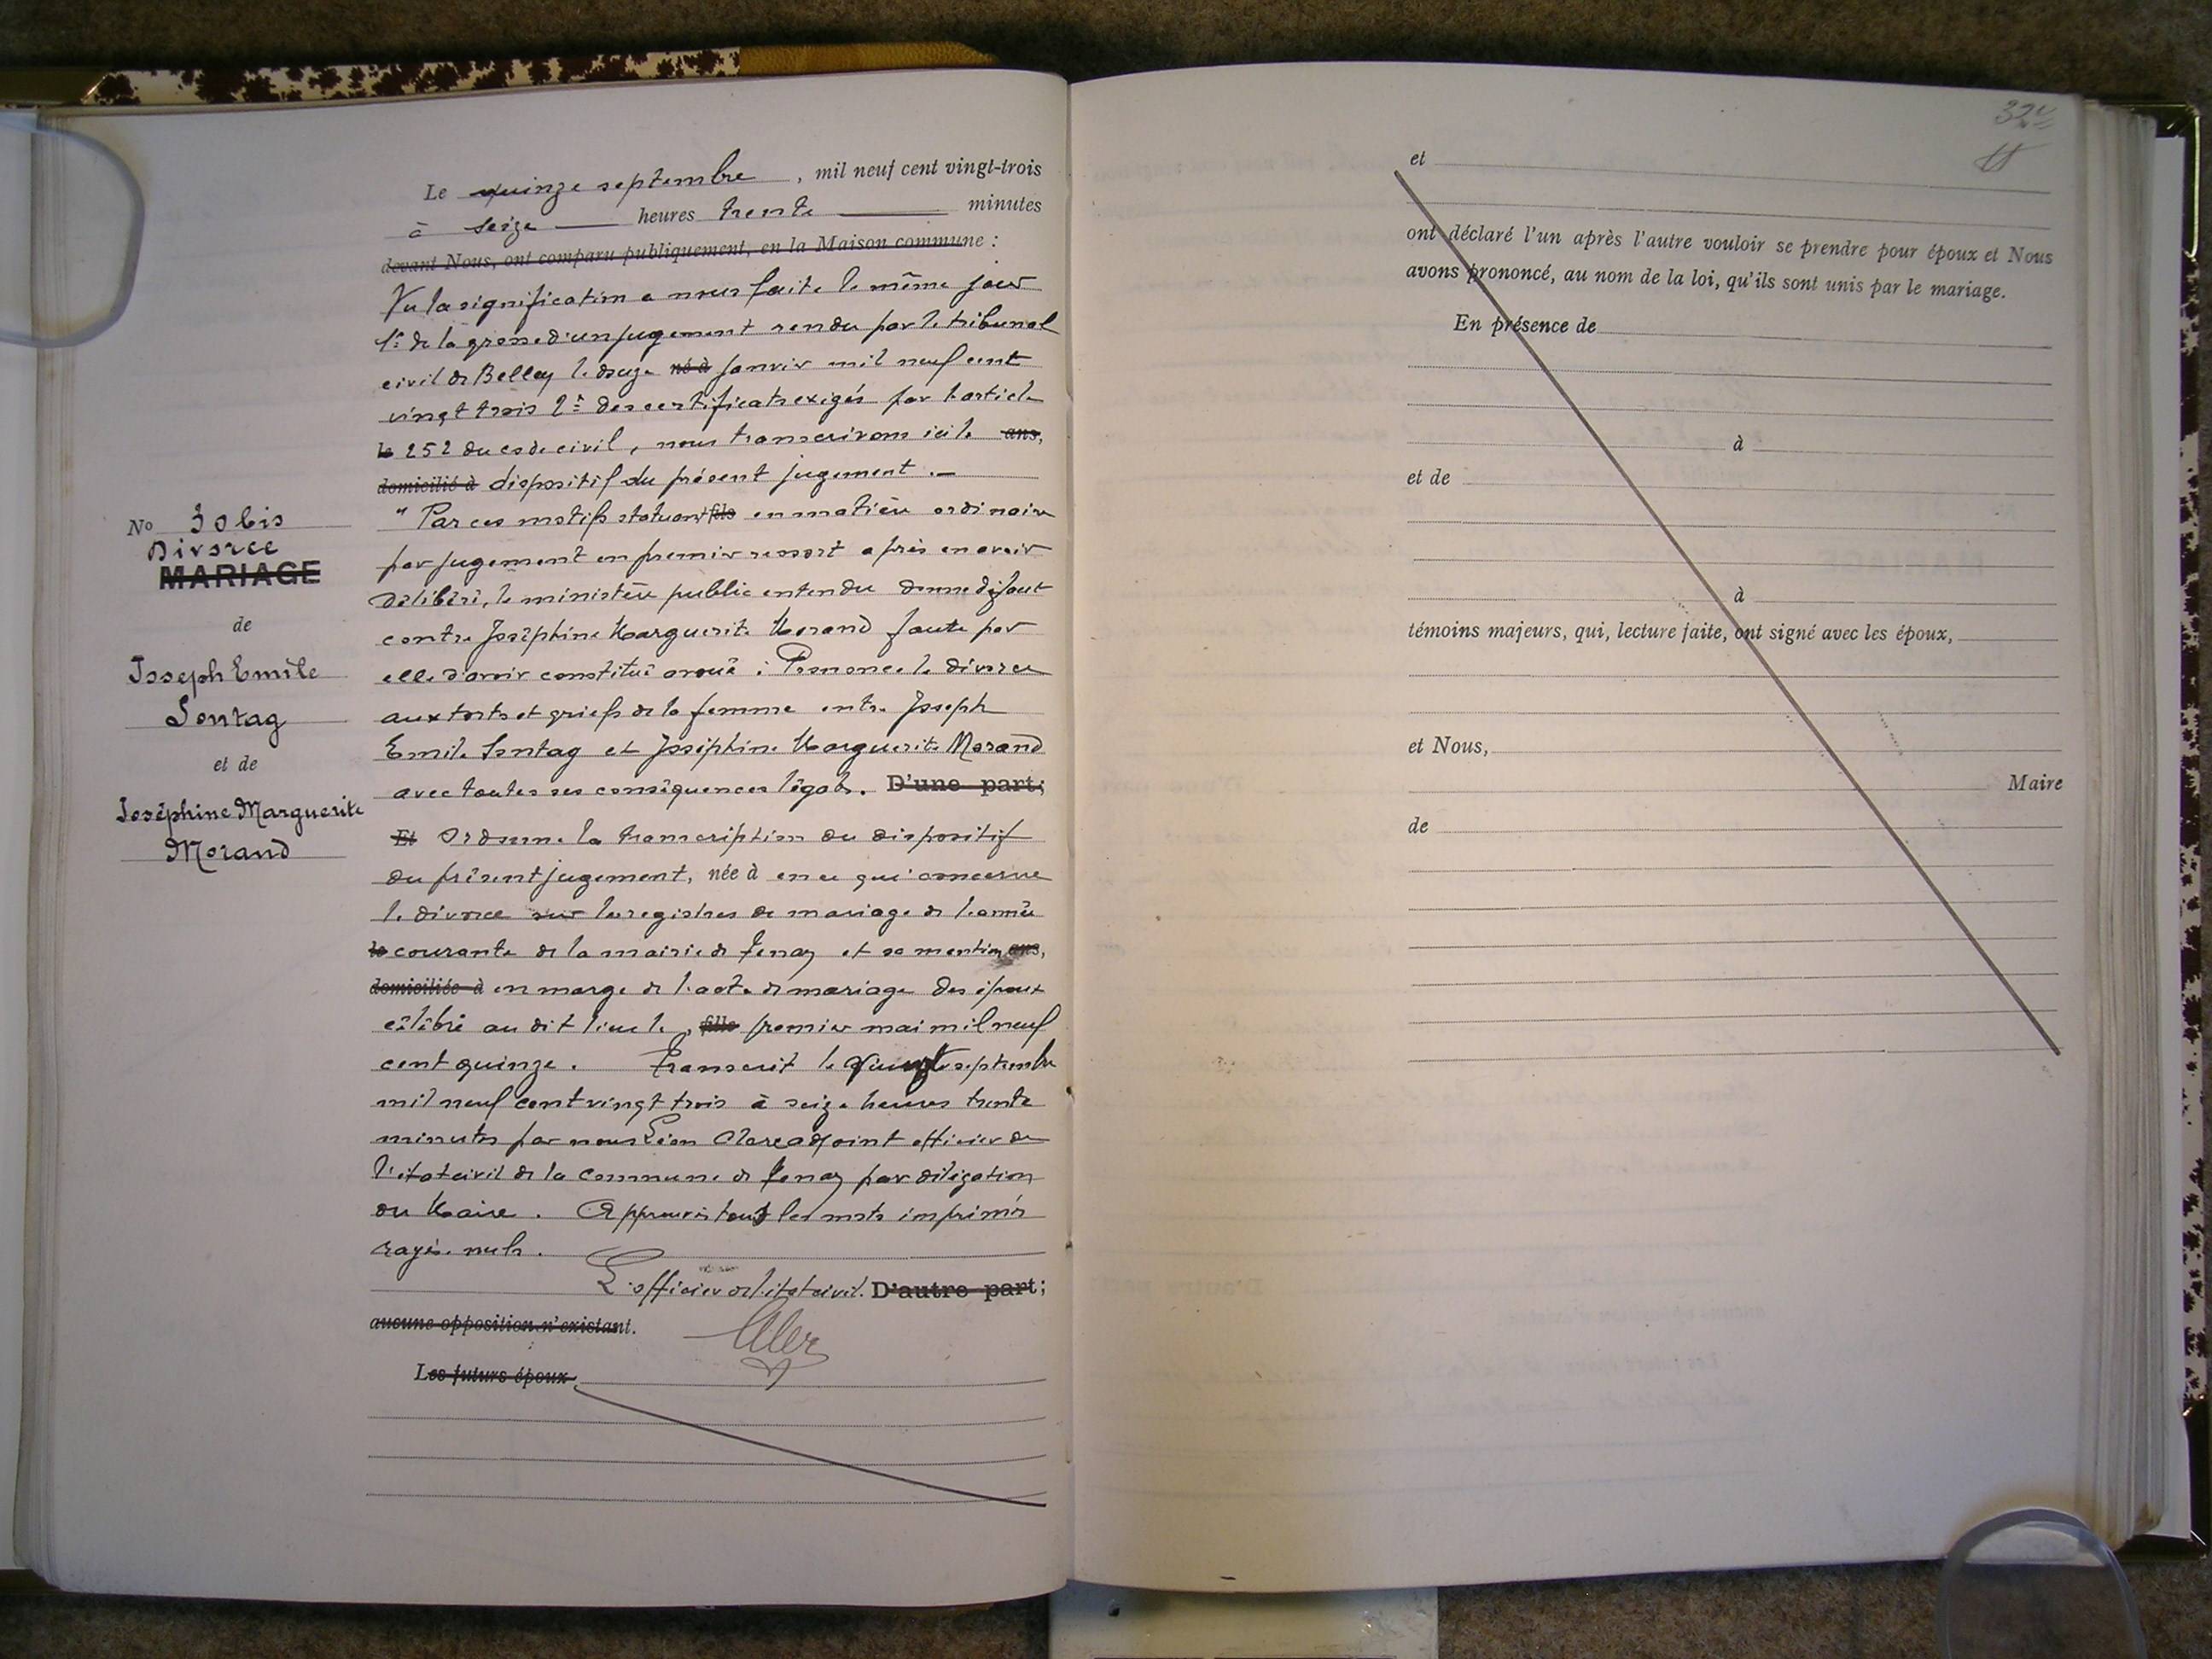 No 30 bis
Divorce
MARIAGE
de
Joseph Emile
Sontag
et de
Joséphine Marguerite
Morand
Le quinze septembre, mil neuf cent vingt-trois
à seize heures trente minutes
devant Nous, ont comparu publiquement, en la Maison commune :
Vu la signification a nous faite le même jour
1º de la grosse d'un jugement rendu par le tribunal
civil de Belley le douze né à janvier mil neuf cent
vingt trois 2º des certificats exigés par l'article
le 252 du code civil, nous transcrivons ici le ans,
domicilié à dispositif du présent jugement .—
" Par ces motifs statuant fils en matière ordinaire
par jugement en premier ressort après en avoir
délibéré, le ministère public entendu donne défaut
contre Joséphine Marguerite Morand faute par
elle d'avoir constitué avoué : Prononce le divorce
aux torts et griefs de la femme entre Joseph
Emile Sontag et Joséphine Marguerite Morand
avec toutes ses conséquences légales. D'une part;
Et Ordonne la transcription du dispositif
du présent jugement, née à en ce qui concerne
le divorce sur les registres de mariage de l'année
le courante de la mairie de Tenay et sa mention ans,
domiciliée à en marge de l'acte de mariage des époux
célébré au dit lieu le, fille premier mai mil neuf
cent quinze. Transcrit le quinze septembre
mil neuf cent vingt trois à seize heures trente
minutes par nous Léon adjoint officier de
l'état civil de la commune de Tenay par délégation
du Maire. Approuvés tous les mots imprimés
rayés nuls.
L'officier de l'état civil. D'autre part;
aucune opposition n'existant.
Les futurs époux
32
et
ont déclaré l'un après l'autre vouloir se prendre pour époux et Nous
avons prononcé, au nom de la loi, qu'ils sont unis par le mariage.
En présence de
à
et de
à
témoins majeurs, qui, lecture faite, ont signé avec les époux,
et Nous,
Maire
de